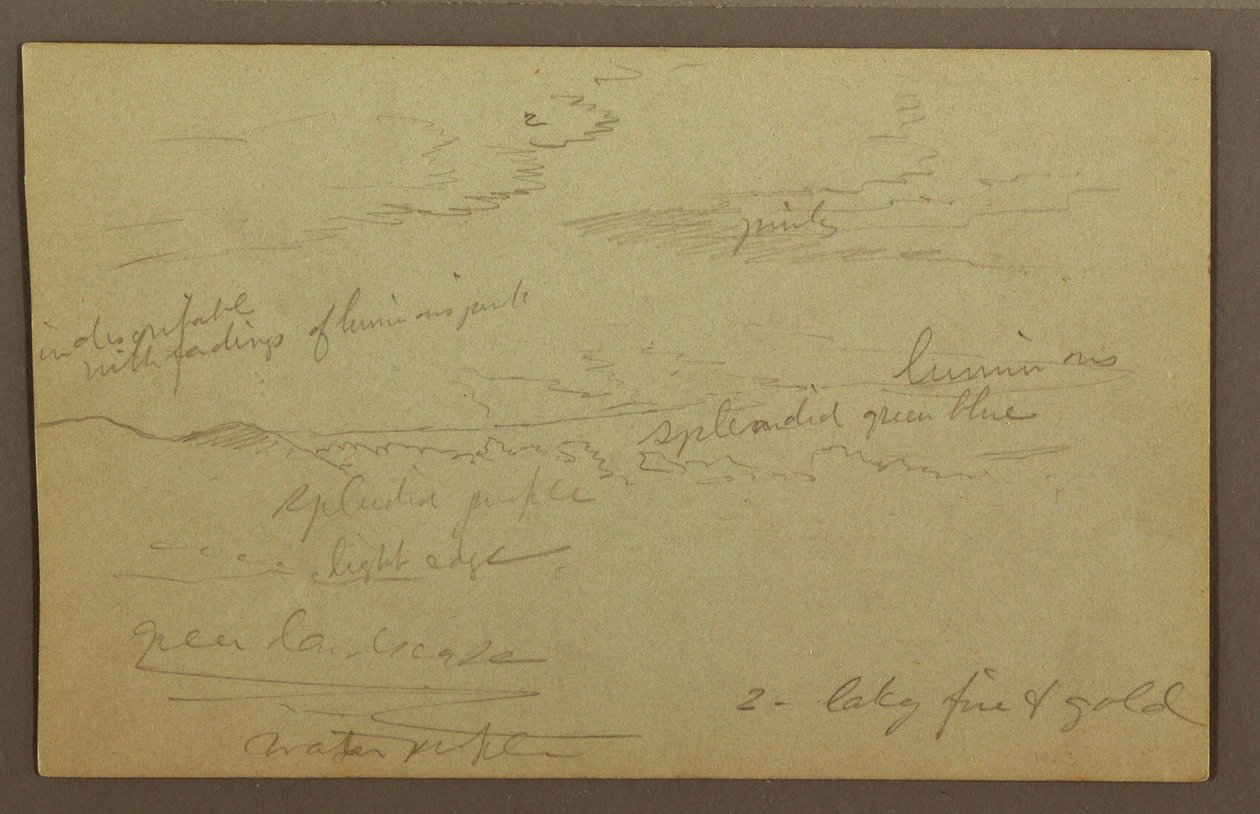 2
pink
indescribable
with fadings of luminous pink
luminous
splendid green blue
splendid purple
light edge
green landscape
2 - laky fire & gold
water